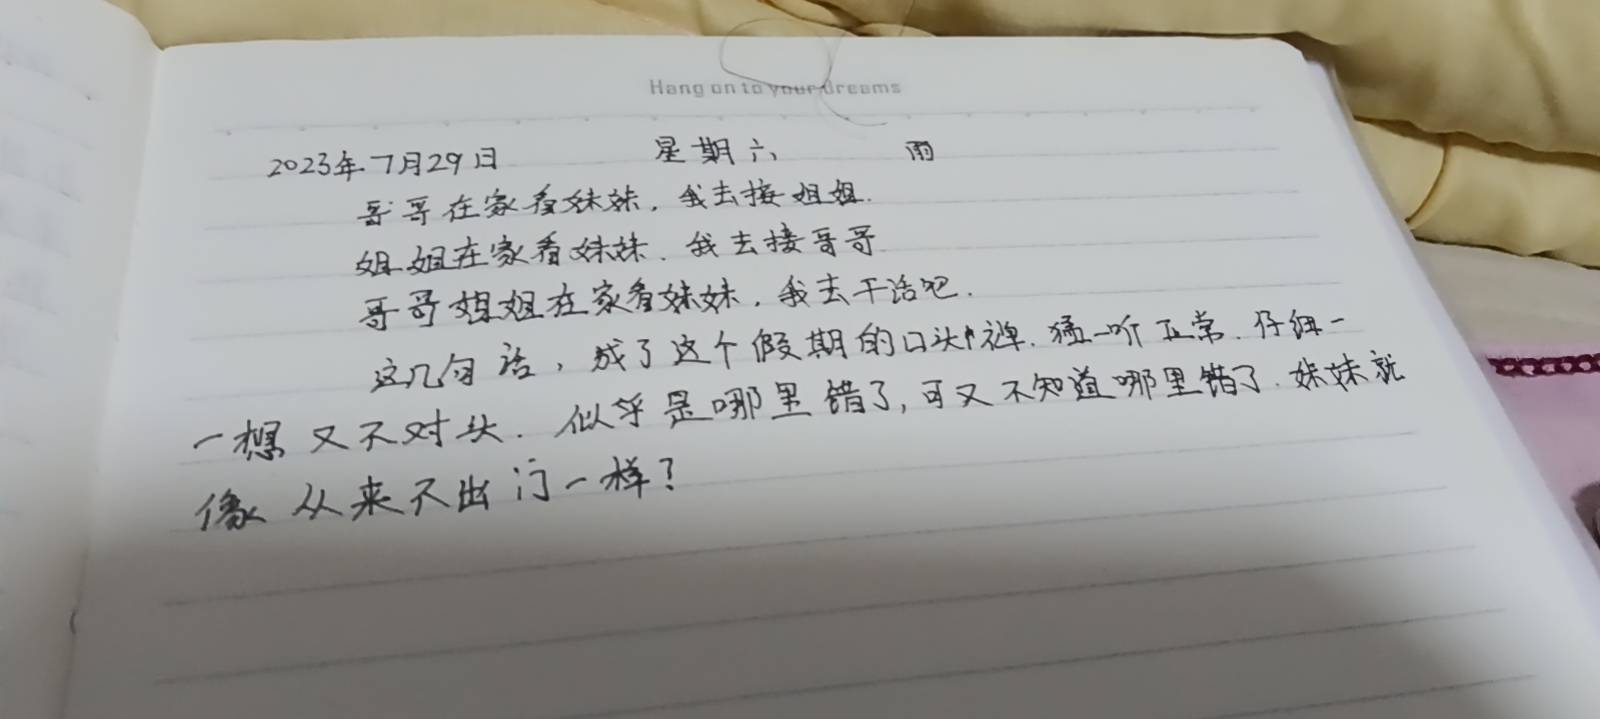 Hang on to your dreams
2023年7月29日 星期六 雨
哥哥在家看妹妹，我去接姐姐.
姐姐在家看妹妹.我去接哥哥
哥哥姐姐在家看妹妹，我去干活吧.
这几句话，成了这个假期的口头禅.猛一听正常.仔细一
一想又不对头.似乎是哪里错了,可又不知道哪里错了.妹妹就
像从来不出门一样?